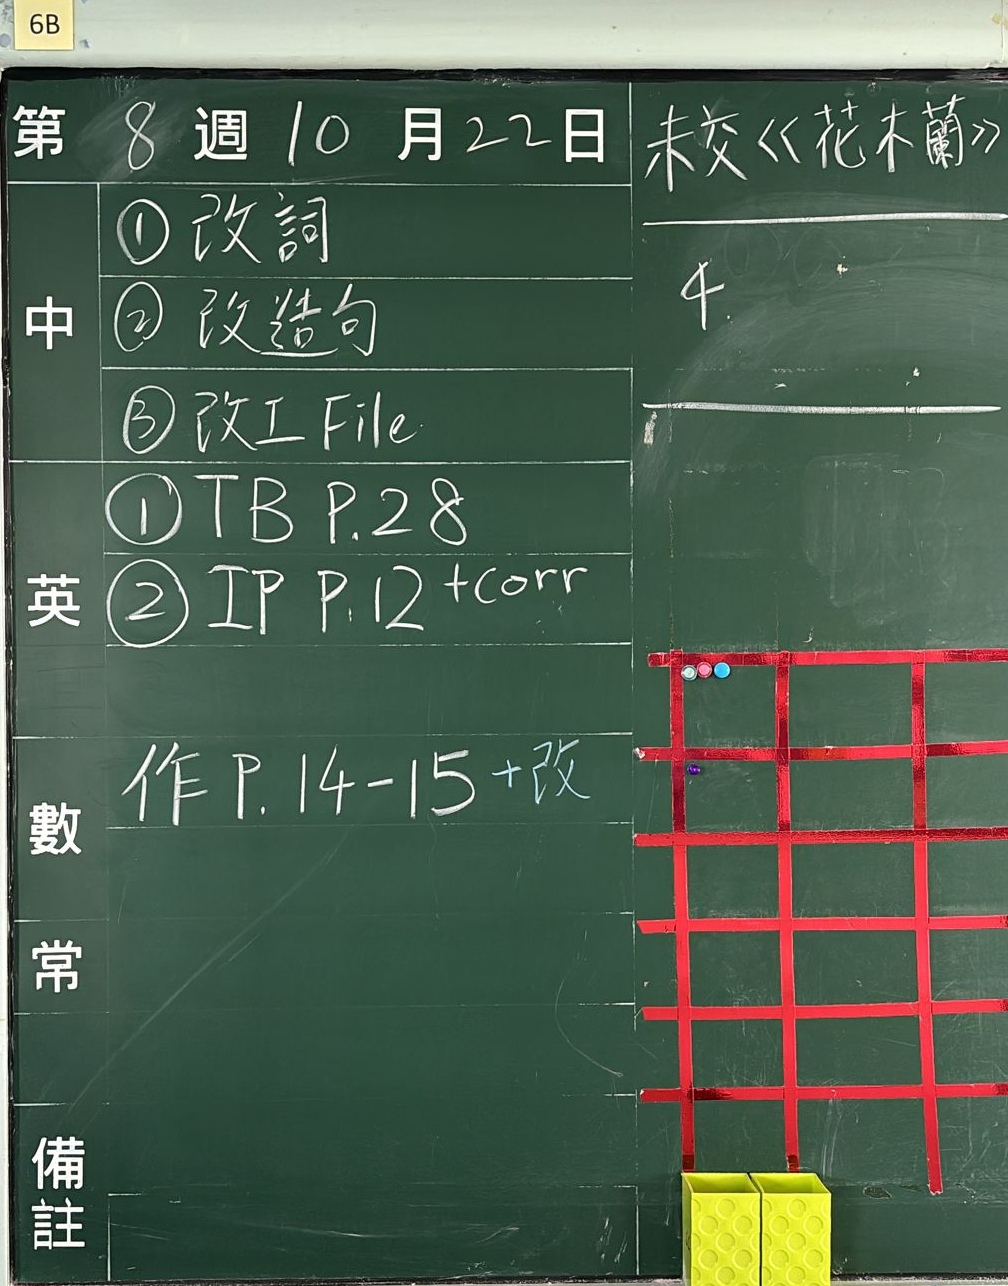 6B
第 8 週 10 月 22 日
中
① 改詞
② 改造句
③ 改工 File
英
① TB P.28
② IP P.12 +corr
數
作 P.14-15 +改
常
備註
未交《花木蘭》
4.